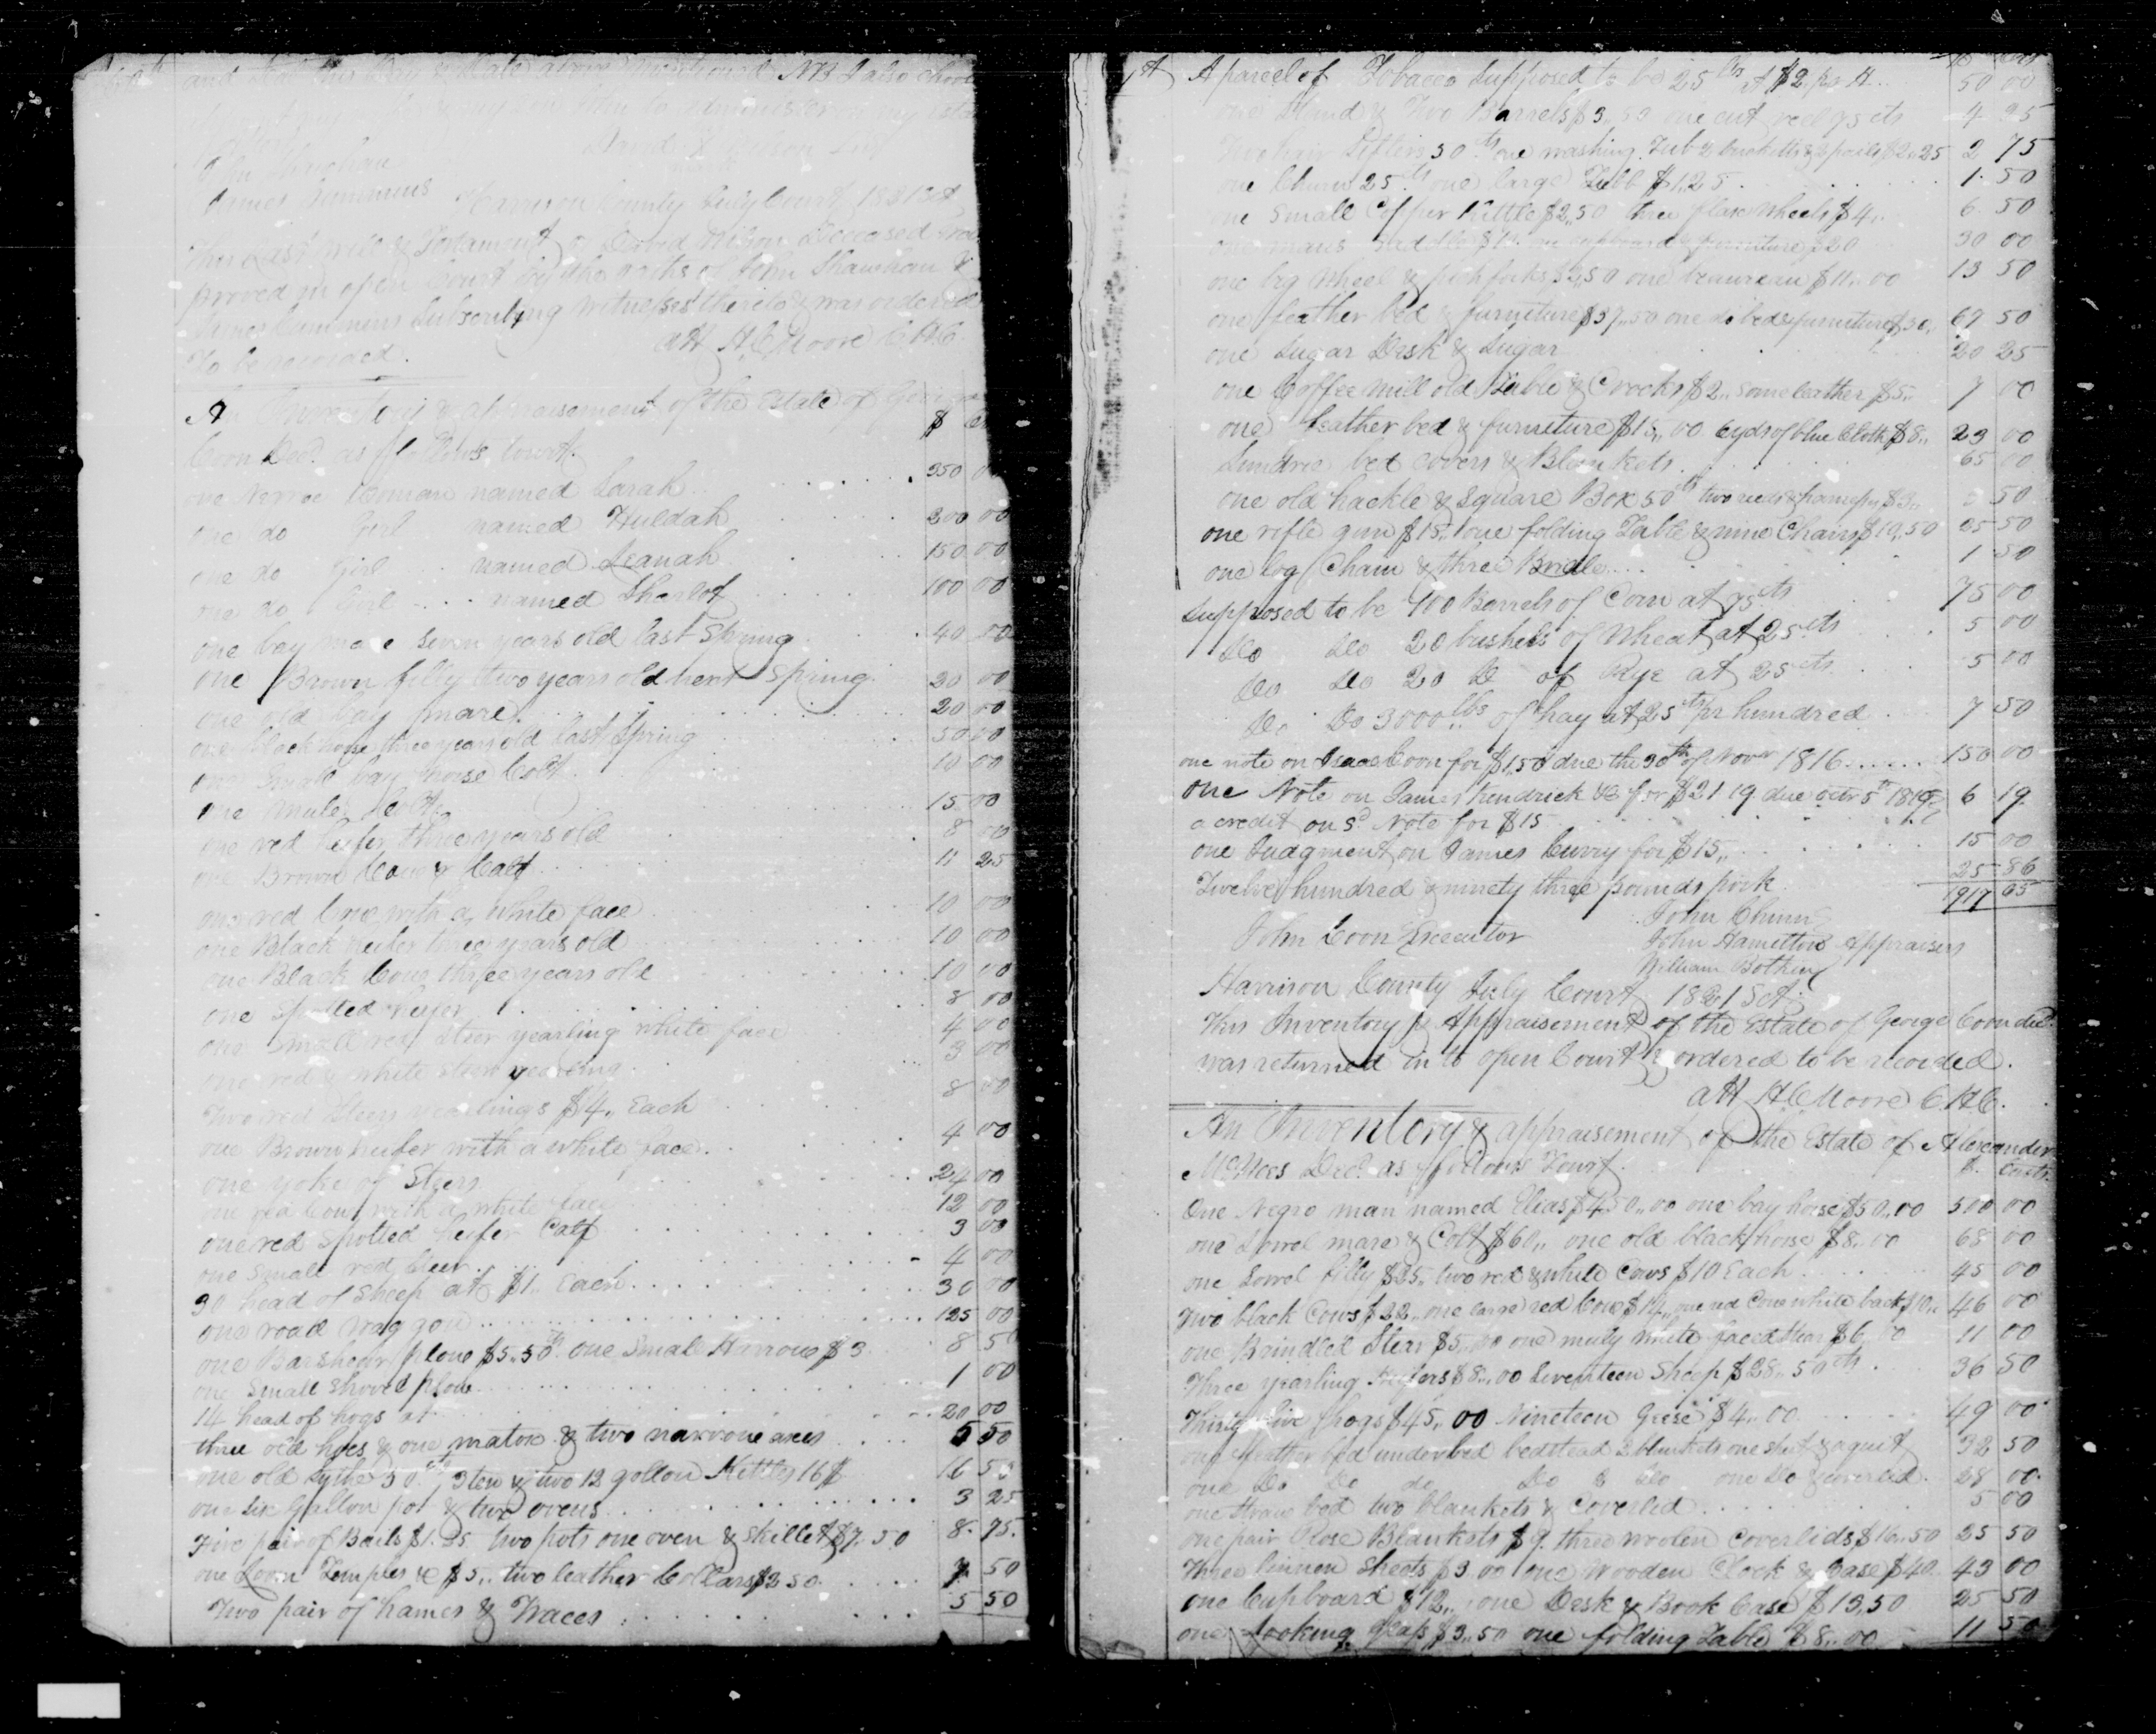 and
David Wilson
John Shawhan
James Cummins
Harrison County July Court 1821 Sct
This Last will & Testament of David Wilson Deceased was
proved in open Court by the oaths of John Shawhan &
James Cummins Subscribing witnesses thereto & was ordered
To be recorded.
att H.C. Moore C.H.C.
An Inventory & appraisement of the Estate of George
Coon Decd. as follows towit.
$
one Negroe Woman named Sarah 350 00
one do Girl named Huldah 200 00
one do Girl named Leanah 150 00
one do Girl named Sharlot 100 00
one bay mare seven years old last Spring 40 00
one Brown filly two years old next Spring 20 00
one old bay mare 20 00
one black horse three years old last Spring 50 00
one small bay horse Colt 10 00
one mule Colt 15 00
one red heifer three years old 8 00
one Brown Cow & Calf 11 25
one red Cow with a white face 10 00
one Black heifer three years old 10 00
one Black Cow three years old 10 00
one Spotted heifer 8 00
one small red Steer yearling white face 4 00
one red & white steer yearling 3 00
Two red Steers yearlings $4,, Each 8 00
one Brown heifer with a white face 4 00
one yoke of Steers 24 00
one red Cow with a white face 12 00
one red Spotted heifer Calf 3 00
one small red Steer 4 00
30 head of Sheep at $1,, Each 30 00
one road Waggon 125 00
one Barshear plow $5,,50 one Small Harrow $3 8 50
one Small shovel plow 1 00
14 head of hogs at 20 00
three old hoes & one matox & two narrow axes 5 50
one old Sythe 50 cts 3 ten & two 12 gallon Kettles 16 $ 16 50
one six Gallon pot & two ovens 3 25
Five pair of Bails $1.25 two pots one oven & Skillet $7,50 8.75.
one Loom Temples &c $5,, two leather Collars $2 50 7 50
Two pair of hames & Traces 5 50
A parcel of Tobacco Supposed to be 25 at $2 pr H. 50 00
one Stand & Two Barrels $3,50 one cut reel 75 cts 4 25
Two hair Sifters 50 cts one washing Tub & bucketts & pails $2.25 2 75
one Churn 25 cts one large Tubb $1,25 1.50
one Small Copper Kettle $2,50 three flax Wheels $4,, 6 50
one mans saddle $10 one cupboard & furniture $20 30 00
one big Wheel & pitch forks $2,50 one beaureau $11,,00 13 50
one feather bed & furniture $37,,50 one do bed & furniture $30,, 67 50
one Sugar Desk & Sugar 20 25
one Coffee mill old Table & Crocks $2,, some leather $5,, 7 00
one feather bed & furniture $15,,00 6 yds of blue Cloth $8,, 23 00
Sundree bed covers & Blankets 65 00
one old hackle & Square Box 50 cts two reeds 50
one rifle gun $15,, one folding Table & nine Chairs $10,50 25 50
one log Chain & three Bridles 1 50
Supposed to be 100 Barrels of Corn at 75 cts 75 00
Do Do 20 bushels of Wheat at 25 cts 5 00
Do Do 20 Do of Rye at 25 cts 5 00
Do Do 3000 lbs of hay at 25 cts pr hundred 7 50
one note on Isaac Coon for $150 due the 30th of Novr 1816 150 00
one Note on James Kendrick &c for $21 19 due octr 5th 1819 6 19
a credit on sd. Note for $15
one Judgment on James Curry for $15,, 15 00
Twelve hundred & ninety three pounds pork 25.86
1917 65
John Chinn
John Coon Executor John Hamilton Appraisers
William Botkin
Harrison County July Court 1821 Sct.
This Inventory & Appraisement of the Estate of George Coon decd.
was returned in to open Court & ordered to be recorded.
att H.C. Moore C.H.C.
An Inventory & appraisement of the Estate of Alexander
McNees Decd. as follows Towit. $ Cents
One Negro man named Elias $450,,00 one bay horse $50,,00 500 00
one Sorrel mare & Colt $60,, one old black horse $8,,00 68 00
one Sorrel filly $25,, two red & white Cows $10 Each 45 00
Two black Cows $22,, one large red Cow $14,, one red Cow white back $10,, 46 00
one Brindled Steer $5,,00 one white faced Steer $6,,00 11 00
Three yearling Heifers $8,,00 Seventeen Sheep $28,,50 cts 36 50
Thirty five hogs $45,,00 Nineteen Geese $4,,00 49 00
one feather bed underbed bedstead 2 blankets one sheet & a quilt 32 50
one Do Do do Do & Do one Do & coverled 28 00
one straw bed two blankets & Coverled 5 00
one pair Rose Blankets $9. three woolen Coverlids $16,,50 25 50
Three linnen Sheets $3,00 one Wooden Clock & Case $40 43 00
one Cupboard $12,, one Desk & Book Case $13,50 25 50
one looking glass $3,,50 one folding Table $8,,00 11 50